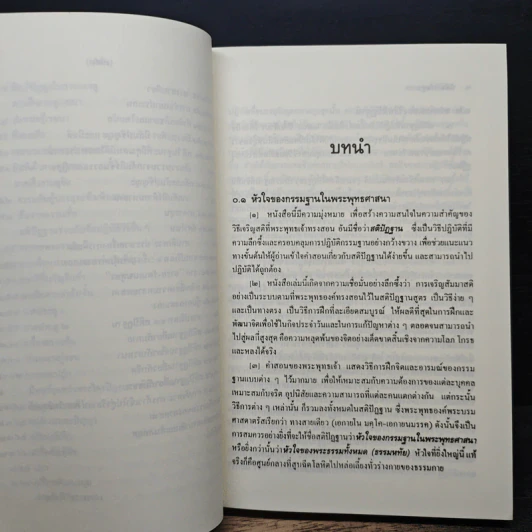 บทนำ
๐.๑ หัวใจของกรรมฐานในพระพุทธศาสนา
[๑] หนังสือนี้มีความมุ่งหมาย เพื่อสร้างความสนใจในความสำคัญของ
วิธีเจริญสติที่พระพุทธเจ้าทรงสอน อันมีชื่อว่าสติปัฏฐาน ซึ่งเป็นวิธีปฏิบัติที่มี
ความลึกซึ้งและครอบคลุมการปฏิบัติกรรมฐานอย่างกว้างขวาง เพื่อช่วยแนะแนว
ทางขั้นต้นให้ผู้อ่านเข้าใจคำสอนเกี่ยวกับสติปัฏฐานได้ง่ายขึ้น และสามารถนำไป
ปฏิบัติได้ถูกต้อง
[๒] หนังสือเล่มนี้เกิดจากความเชื่อมั่นอย่างลึกซึ้งว่า การเจริญสัมมาสติ
อย่างเป็นระบบตามที่พระพุทธองค์ทรงสอนไว้ในสติปัฏฐานสูตร เป็นวิธีง่าย ๆ
และเป็นทางตรง เป็นวิธีการฝึกที่ละเอียดสมบูรณ์ ให้ผลดีที่สุดในการฝึกและ
พัฒนาจิตเพื่อใช้ในกิจประจำวันและในการแก้ปัญหาต่าง ๆ ตลอดจนสามารถนำ
ไปสู่ผลที่สูงสุด คือความหลุดพ้นของจิตอย่างเด็ดขาดสิ้นเชิงจากความโลภ โกรธ
และหลงได้จริง
[๓] คำสอนของพระพุทธเจ้า แสดงวิธีการฝึกจิตและอารมณ์ของกรรม
ฐานแบบต่าง ๆ ไว้มากมาย เพื่อให้เหมาะสมกับความต้องการของแต่ละบุคคล
เหมาะสมกับจริต อุปนิสัยและความสามารถที่แต่ละคนแตกต่างกัน แต่กระนั้น
วิธีการต่าง ๆ เหล่านั้น ก็รวมลงทั้งหมดในสติปัฏฐาน ซึ่งพระพุทธองค์พระบรม
ศาสดาตรัสเรียกว่า ทางสายเดียว (เอกายโน มคฺโค-เอกายนมรรค) ดังนั้นจึงเป็น
การสมควรอย่างยิ่งที่จะให้ชื่อสติปัฏฐานว่าหัวใจของกรรมฐานในพระพุทธศาสนา
หรือยิ่งกว่านั้นว่าหัวใจของพระธรรมทั้งหมด (ธรรมหทัย) หัวใจที่ยิ่งใหญ่นี้ แท้
จริงก็คือศูนย์กลางที่สูบฉีดโลหิตไปหล่อเลี้ยงทั่วร่างกายของธรรมกาย